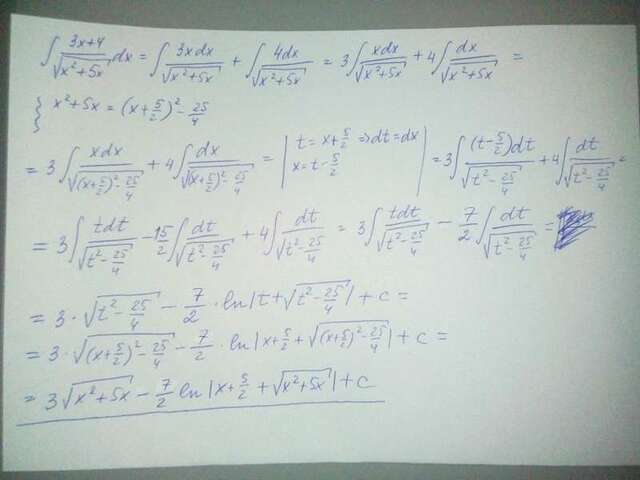 ∫ (3x+4)/√(x²+5x) dx = ∫ 3xdx/√(x²+5x) + ∫ 4dx/√(x²+5x) = 3∫ xdx/√(x²+5x) + 4∫ dx/√(x²+5x) =
{ x²+5x = (x+5/2)² - 25/4
= 3∫ xdx/√((x+5/2)² - 25/4) + 4∫ dx/√((x+5/2)² - 25/4) = | t = x+5/2 ⇒ dt = dx x = t - 5/2 | = 3∫ (t-5/2)dt/√(t² - 25/4) + 4∫ dt/√(t² - 25/4) =
= 3∫ tdt/√(t² - 25/4) - 15/2 ∫ dt/√(t² - 25/4) + 4∫ dt/√(t² - 25/4) = 3∫ tdt/√(t² - 25/4) - 7/2 ∫ dt/√(t² - 25/4) =
= 3·√(t² - 25/4) - 7/2 · ln|t+√(t² - 25/4)| + c =
= 3·√((x+5/2)² - 25/4) - 7/2 · ln|x+5/2 + √((x+5/2)² - 25/4)| + c =
= 3√(x²+5x) - 7/2 ln|x+5/2 + √(x²+5x)| + c